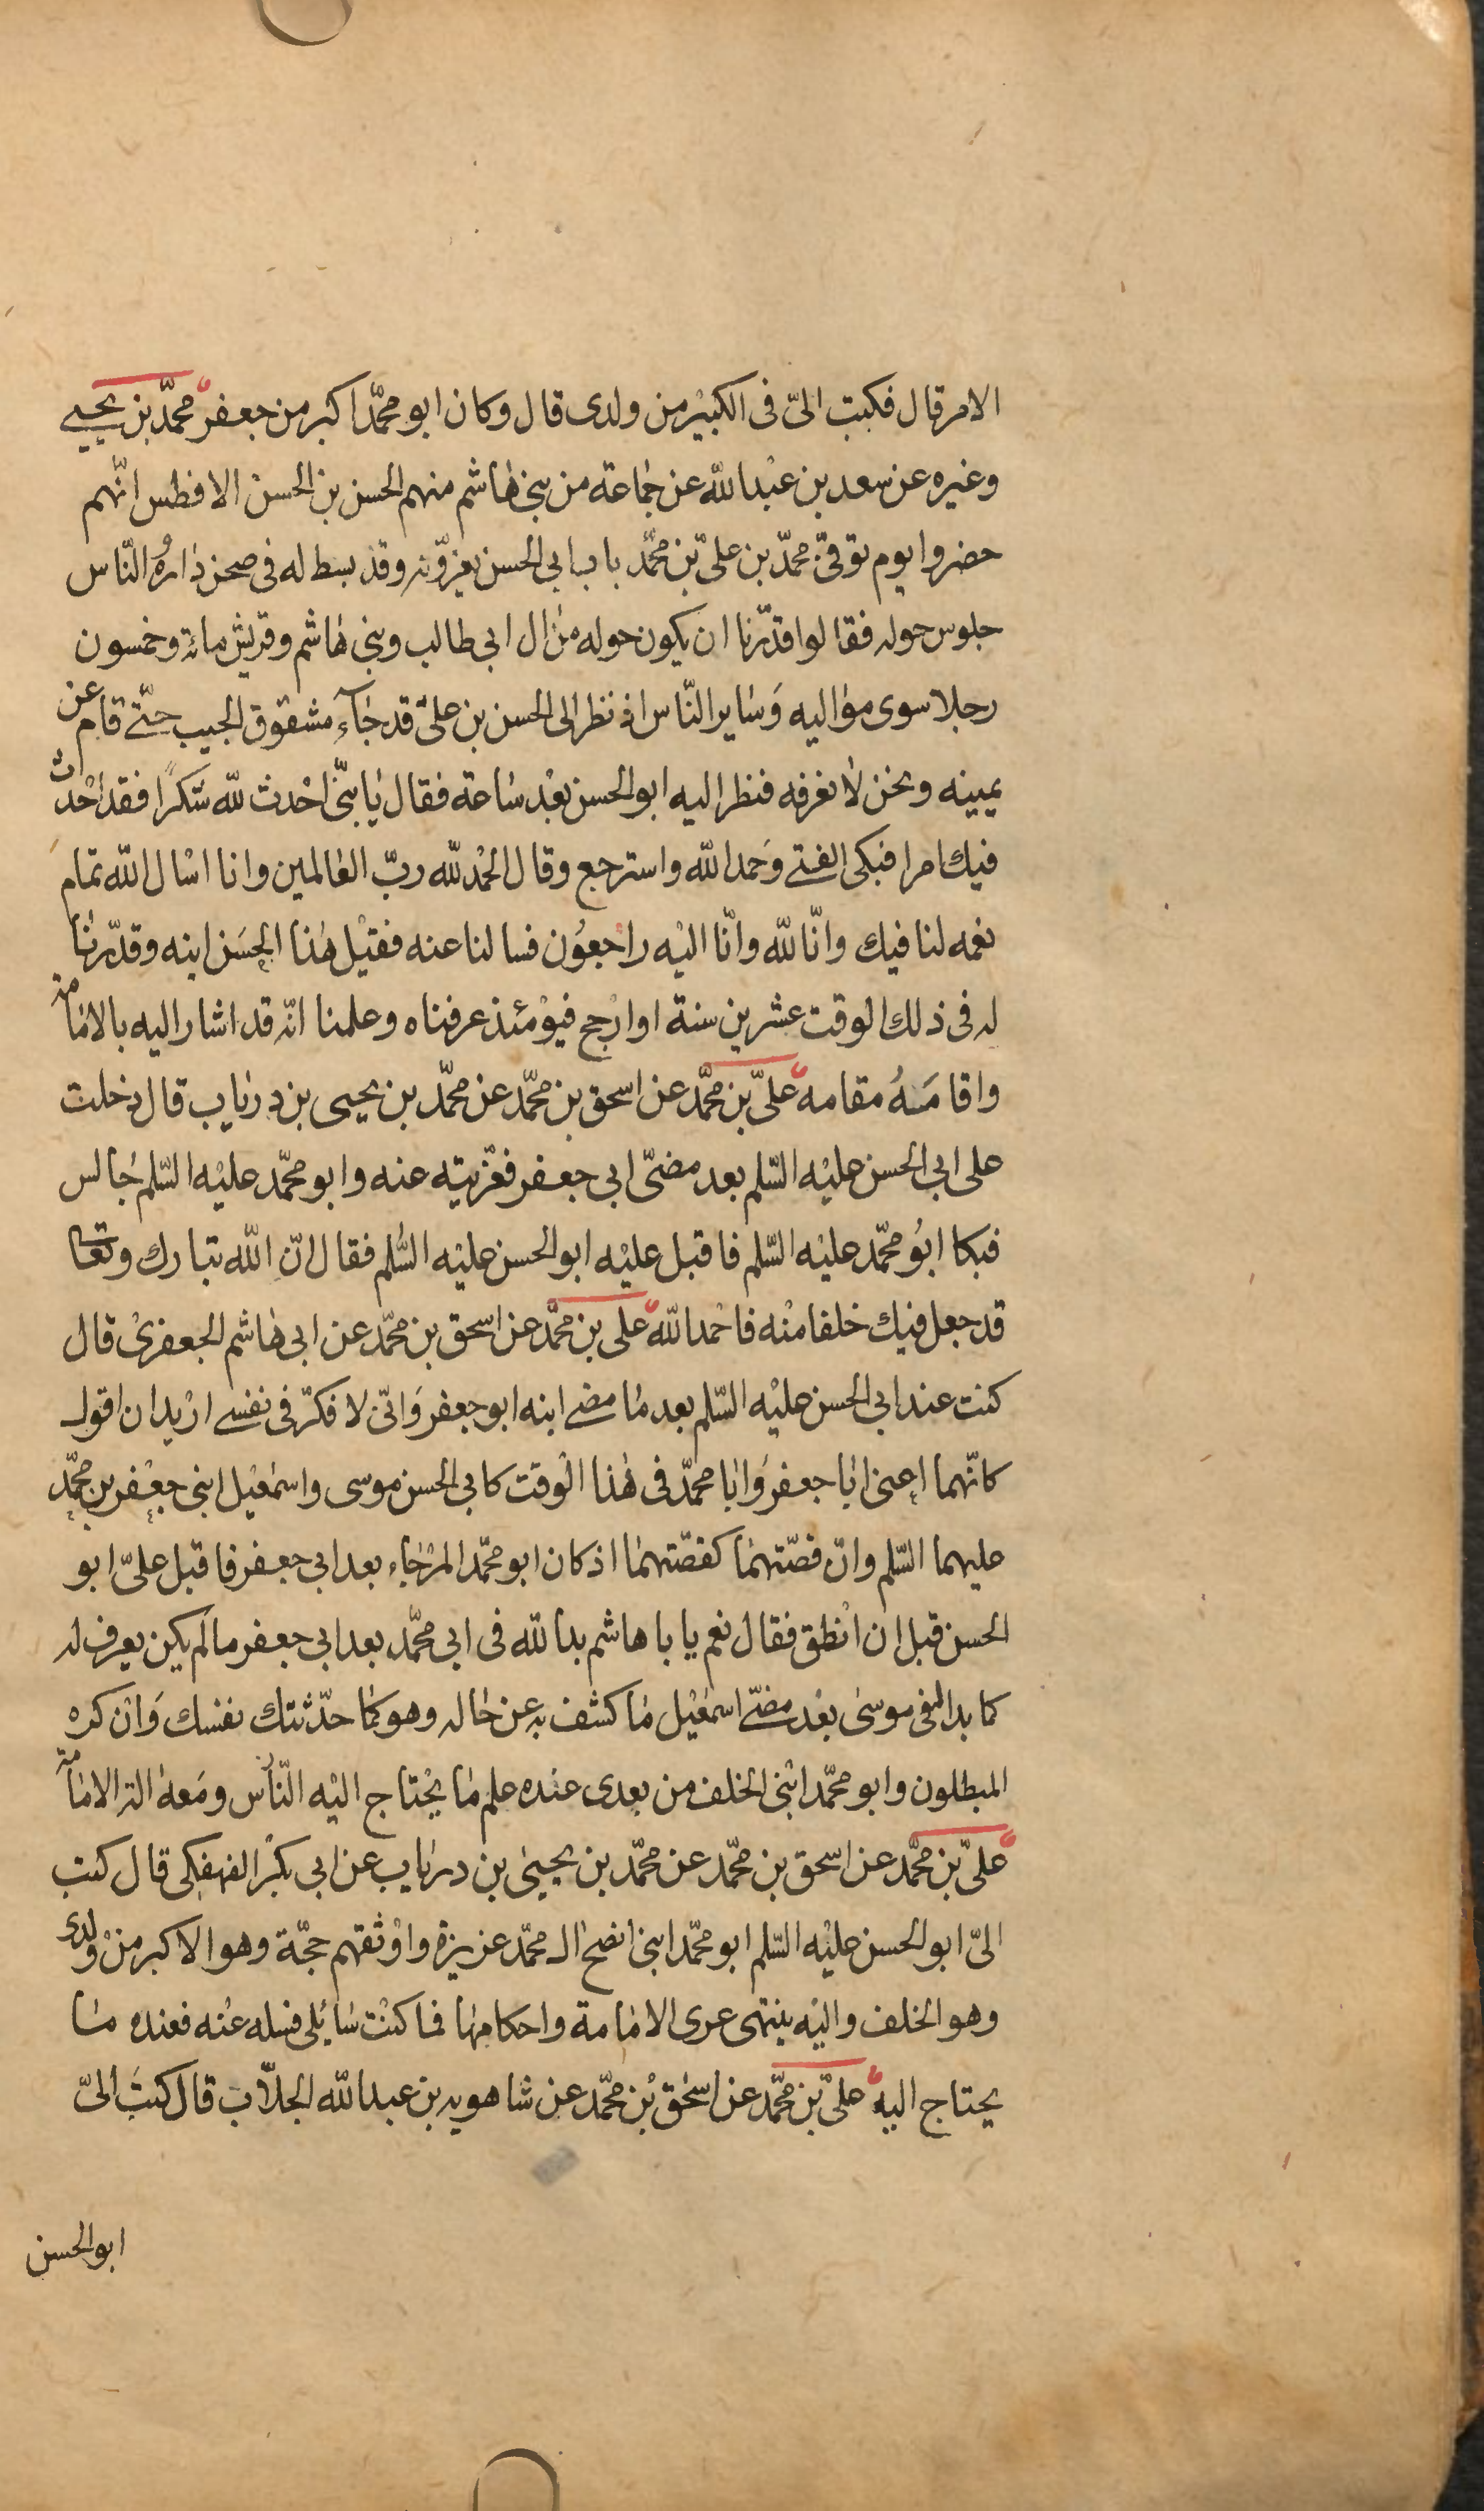 الامر قال فكتب الىّ فى الكبيْر من ولدى قال وكان ابو محمّد اكبر من جعفر محمّد بن يحيى
وغيره عن سعد بن عبْد الله عن جماعة من بنى هاشم منهم الحسن بن الحسن الافطس انّهم
حضروا يوم توفىّ محمّد بن علىّ بن محمّد باب ابى الحسن يعزّونه وقد بسط له فى صحن دارهُ والنّاس
جلوس حوله فقالوا قدّرنا ان يكون حوله من ال ابى طالب وبنى هاشم وقريش مائة وخمسون
رجلا سوى مواليه وَساير النّاس اذ نظر الى الحسن بن علىّ قد جآء مشقوق الجيب حتّى قام عن
يمينه ونحن لا نعرفه فنظر اليه ابو الحسن بعْد ساعة فقال يا بنىّ احْدث لله شكرًا فقد احْدث
فيك امرا فبكى الفتى وَحمد الله واسترجع وقال الحمْد لله ربّ العالمين وانا اسْال الله تمام
نعمه لنا فيك وانّا لله وانّا اليْه راجعوُن فسالنا عنه فقيْل هذا الحسَن ابنه وقدّرنا
له فى ذلك الوقت عشرين سنة او ارْجح فيوْمئذ عرفناه وعلمنا انّه قد اشار اليه بالامامة
واقامَهُ مقامه علىّ بن محمّد عن اسحق بن محمّد عن محمّد بن يحيى بن درياب قال دخلت
على ابى الحسن عليْه السّلم بعد مضىّ ابى جعفر فعّزيته عنه وابو محمّد عليْه السّلم جالس
فبكا ابوُ محمّد عليْه السّلم فاقبل عليْه ابو الحسن عليْه السّلم فقال انّ الله تبارك وتعا
قد جعل فيك خلفا منْه فاحْمد الله علىّ بن محمّد عن اسحق بن محمّد عن ابى هاشم الجعفرىْ قال
كنت عند ابى الحسن عليْه السّلم بعد ما مضى ابنه ابو جعفر وَانّى لافكرّ فى نفسى ارْيد ان اقول
كانّهما اعنى ابا جعفر وَابا محمّد فى هذا الْوقت كابى الحسن موسى واسمعيْل ابنى جعْفر بن محمّد
عليهما السّلم وانّ قصّتهما كقصّتهما اذ كان ابو محمّد المرْجاء بعد ابى جعفر فاقبل علىّ ابو
الحسن قبل ان انْطق فقال نعم يا با هاشم بدا لله فى ابى محمّد بعد ابى جعفر ما لم يكن يعرف له
كما بدا له فى موسى بعْد مضىّ اسمعيْل ما كشف به عن حاله وهو كما حدّثتك نفسك وَانْ كره
المبطلون وابو محمّد ابْنى الخلف من بعدى عنده علم ما يحْتاج اليْه النّاس ومَعهُ الة الامامة
علىّ بن محمّد عن اسحق بن محمّد عن محمّد بن يحيىٰ بن درياب عن ابى بكر الفهفكى قال كتب
الىّ ابو الحسن عليْه السّلم ابو محمّد ابنى انصح ال محمّد عزيزة واوْثقهم حجّة وهو الاكبر منْ ولدى
وهو الخلف واليْه ينتهى عرى الامامة واحكامها فما كنْت سايلى فسله عنْه فعنده ما
يحتاج اليه علىّ بن محمّد عن اسحٰق بْن محمّد عن شاهويه بن عبد الله الجلّاب قال كتبَ الىّ
ابو الحسن